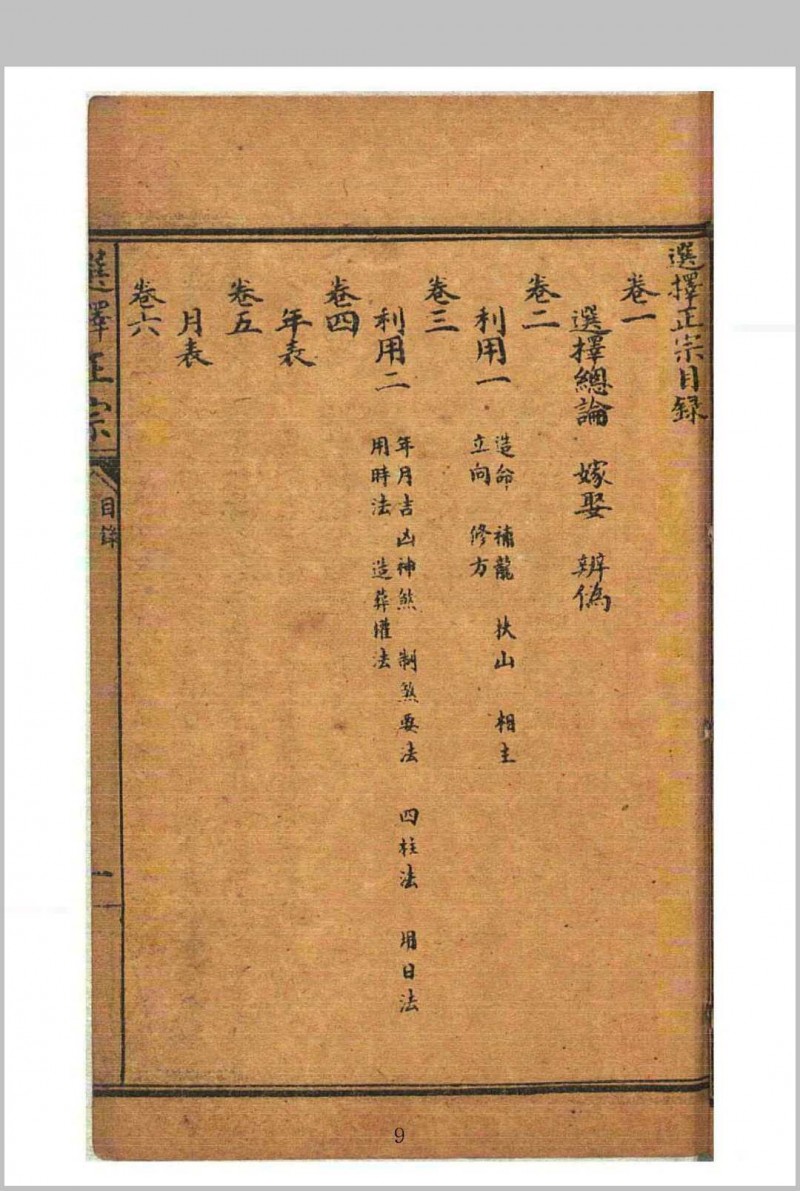 選擇正宗目録
卷一
選擇總論 嫁娶 辨僞
卷二
利用一
造命 補龍 扶山 相主
立向 修方
卷三
利用二
年月吉凶神煞 制煞要法 四柱法 用日法
用時法 造葬權法
卷四
年表
卷五
月表
卷六
選擇正宗
目錄
一
9